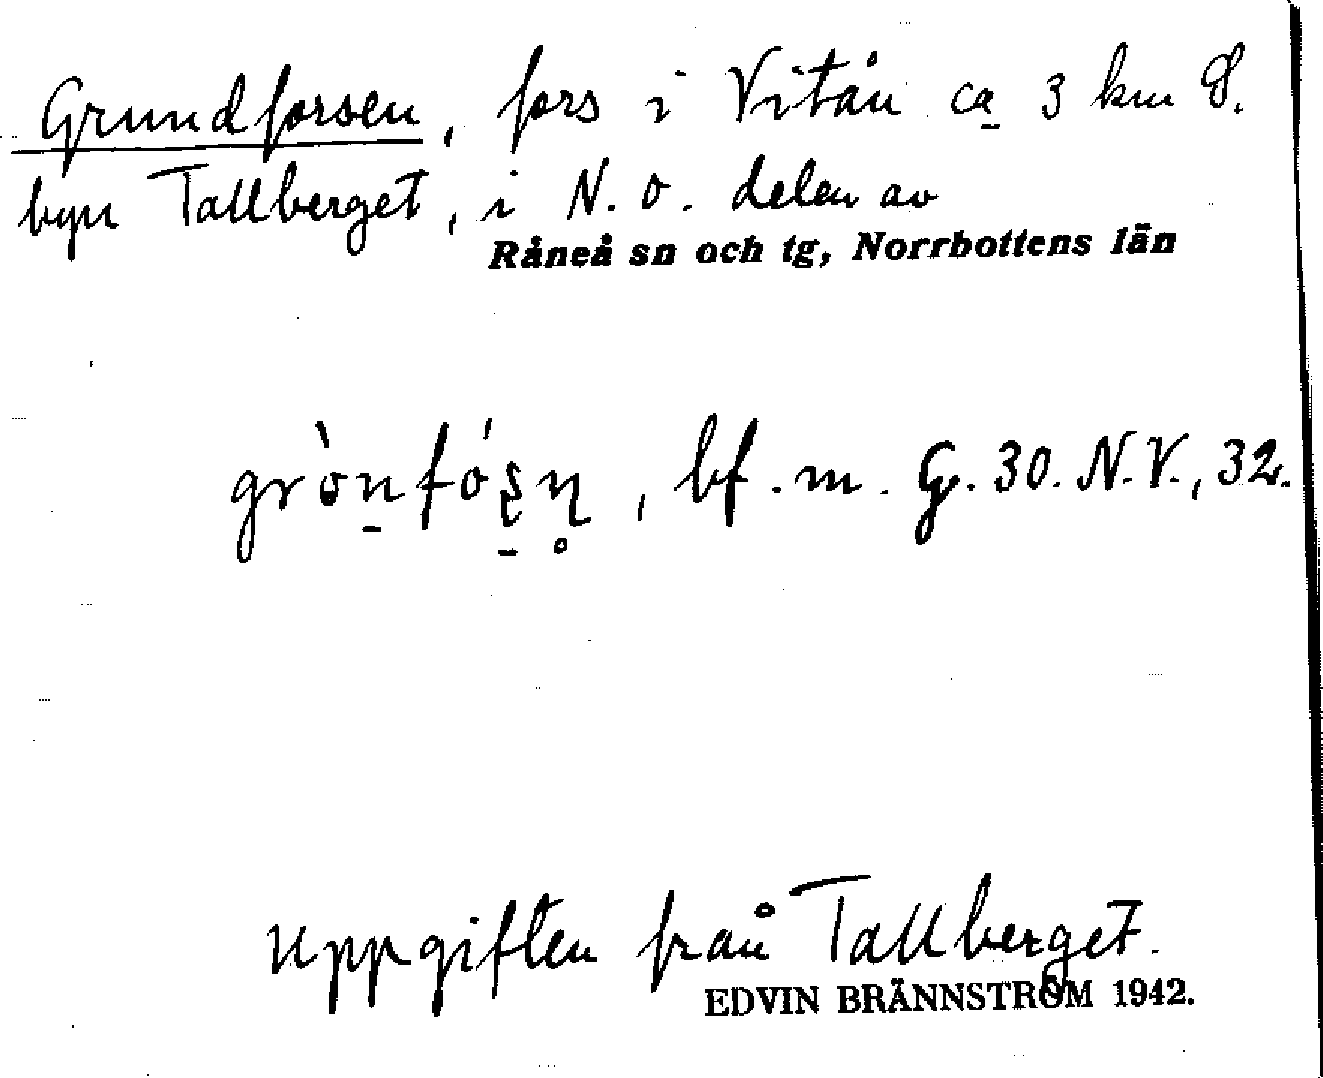 Grundforsen, fors i Vitån ca 3 km S.
byn Tallberget, i N.O. delen av
Råneå sn och tg, Norrbottens län
grònfóʂɳ̥, bf. m. G. 30. N.V., 32.
Uppgiften från Tallberget.
EDVIN BRÄNNSTRÖM 1942.